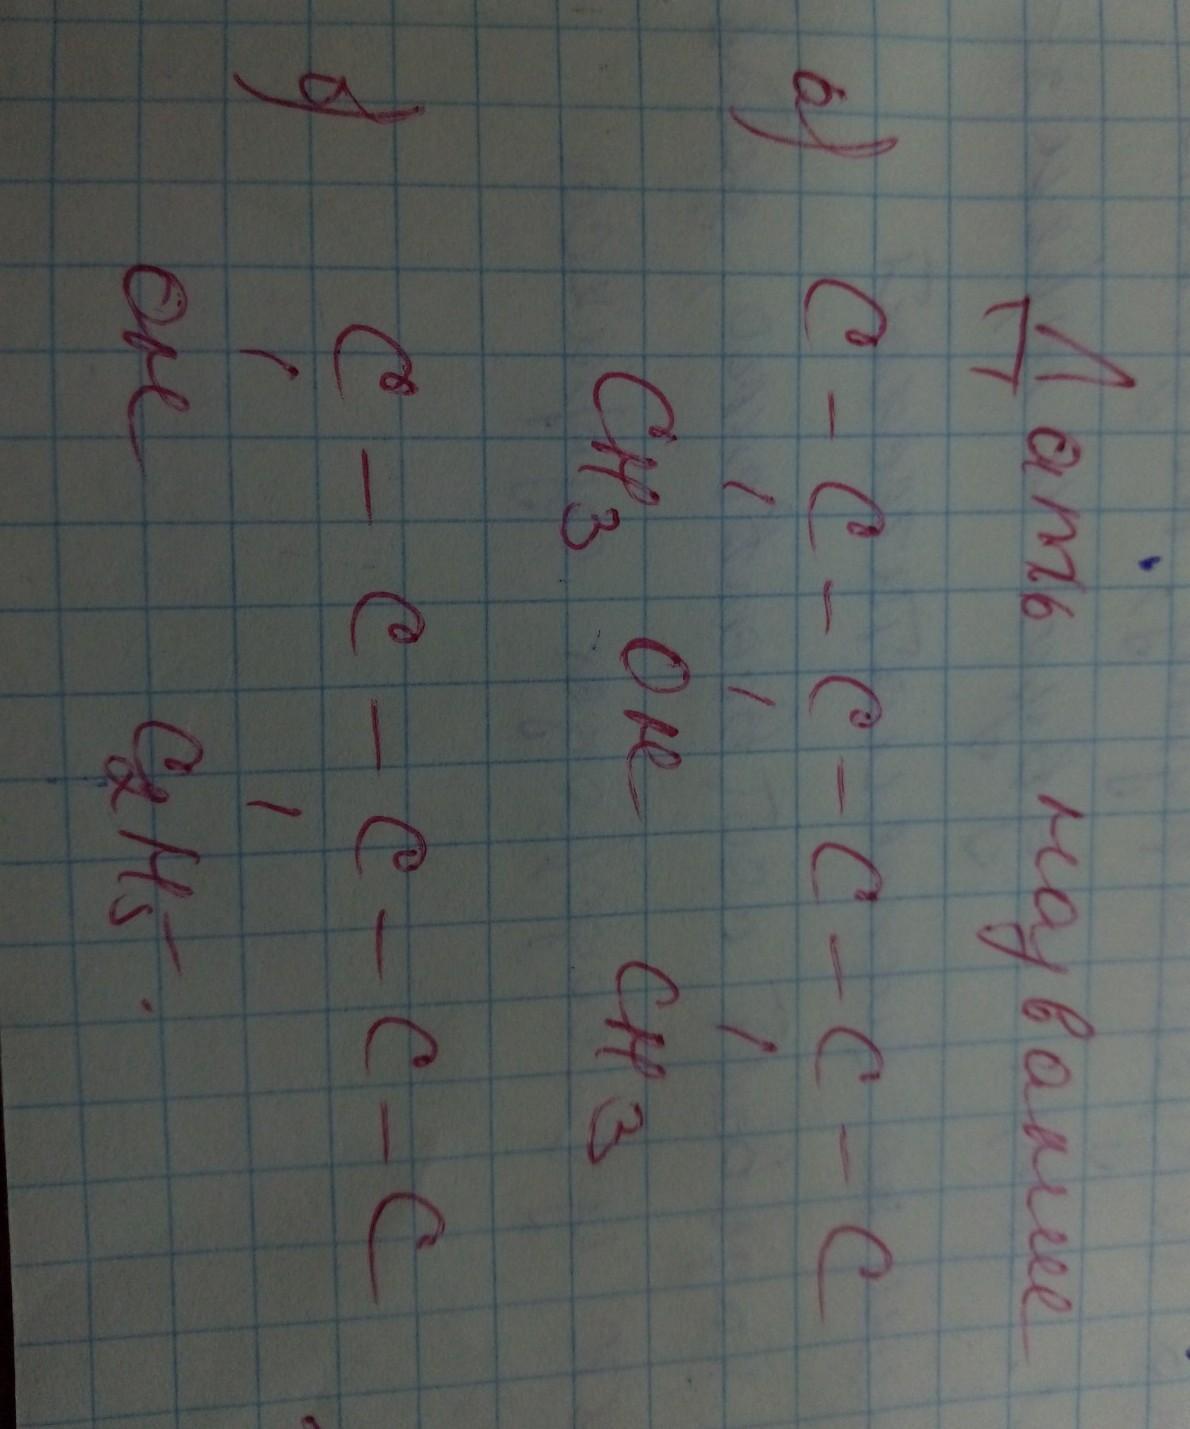 Дать название
а) C - C - C - C - C - C
CH3 OH CH3
б) C - C - C - C - C
OH C2H5